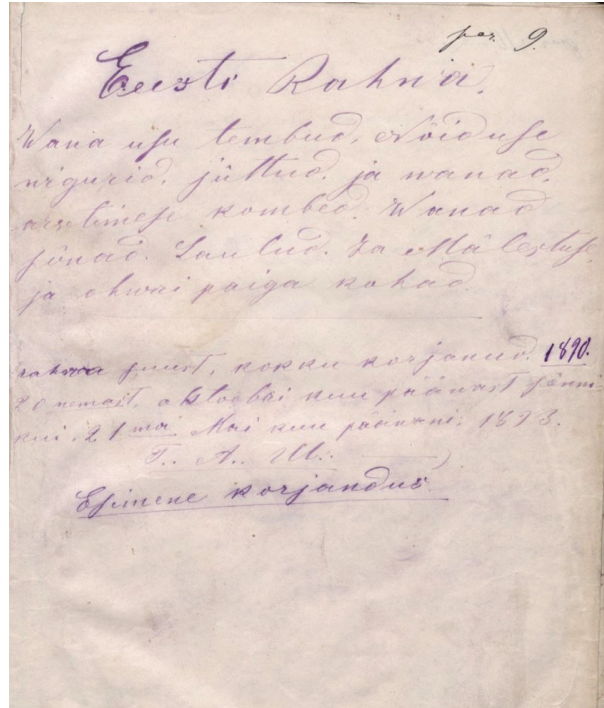 9.
Eesti Rahwa.
Wana usu tembud, Nõiduse
wigurid, juttud, ja wanad,
arstimese kombed. Wanad
sõnad. Laulud. Ja Mälestuse,
ja ohwri paiga kohad.
rahwa suust, kokku korjanud. 1890.
20nemast, oktoobri kuu pääwast sönni
kui, 21ma Mai kuu pääwani. 1893.
T. A.
Esimene korjandus